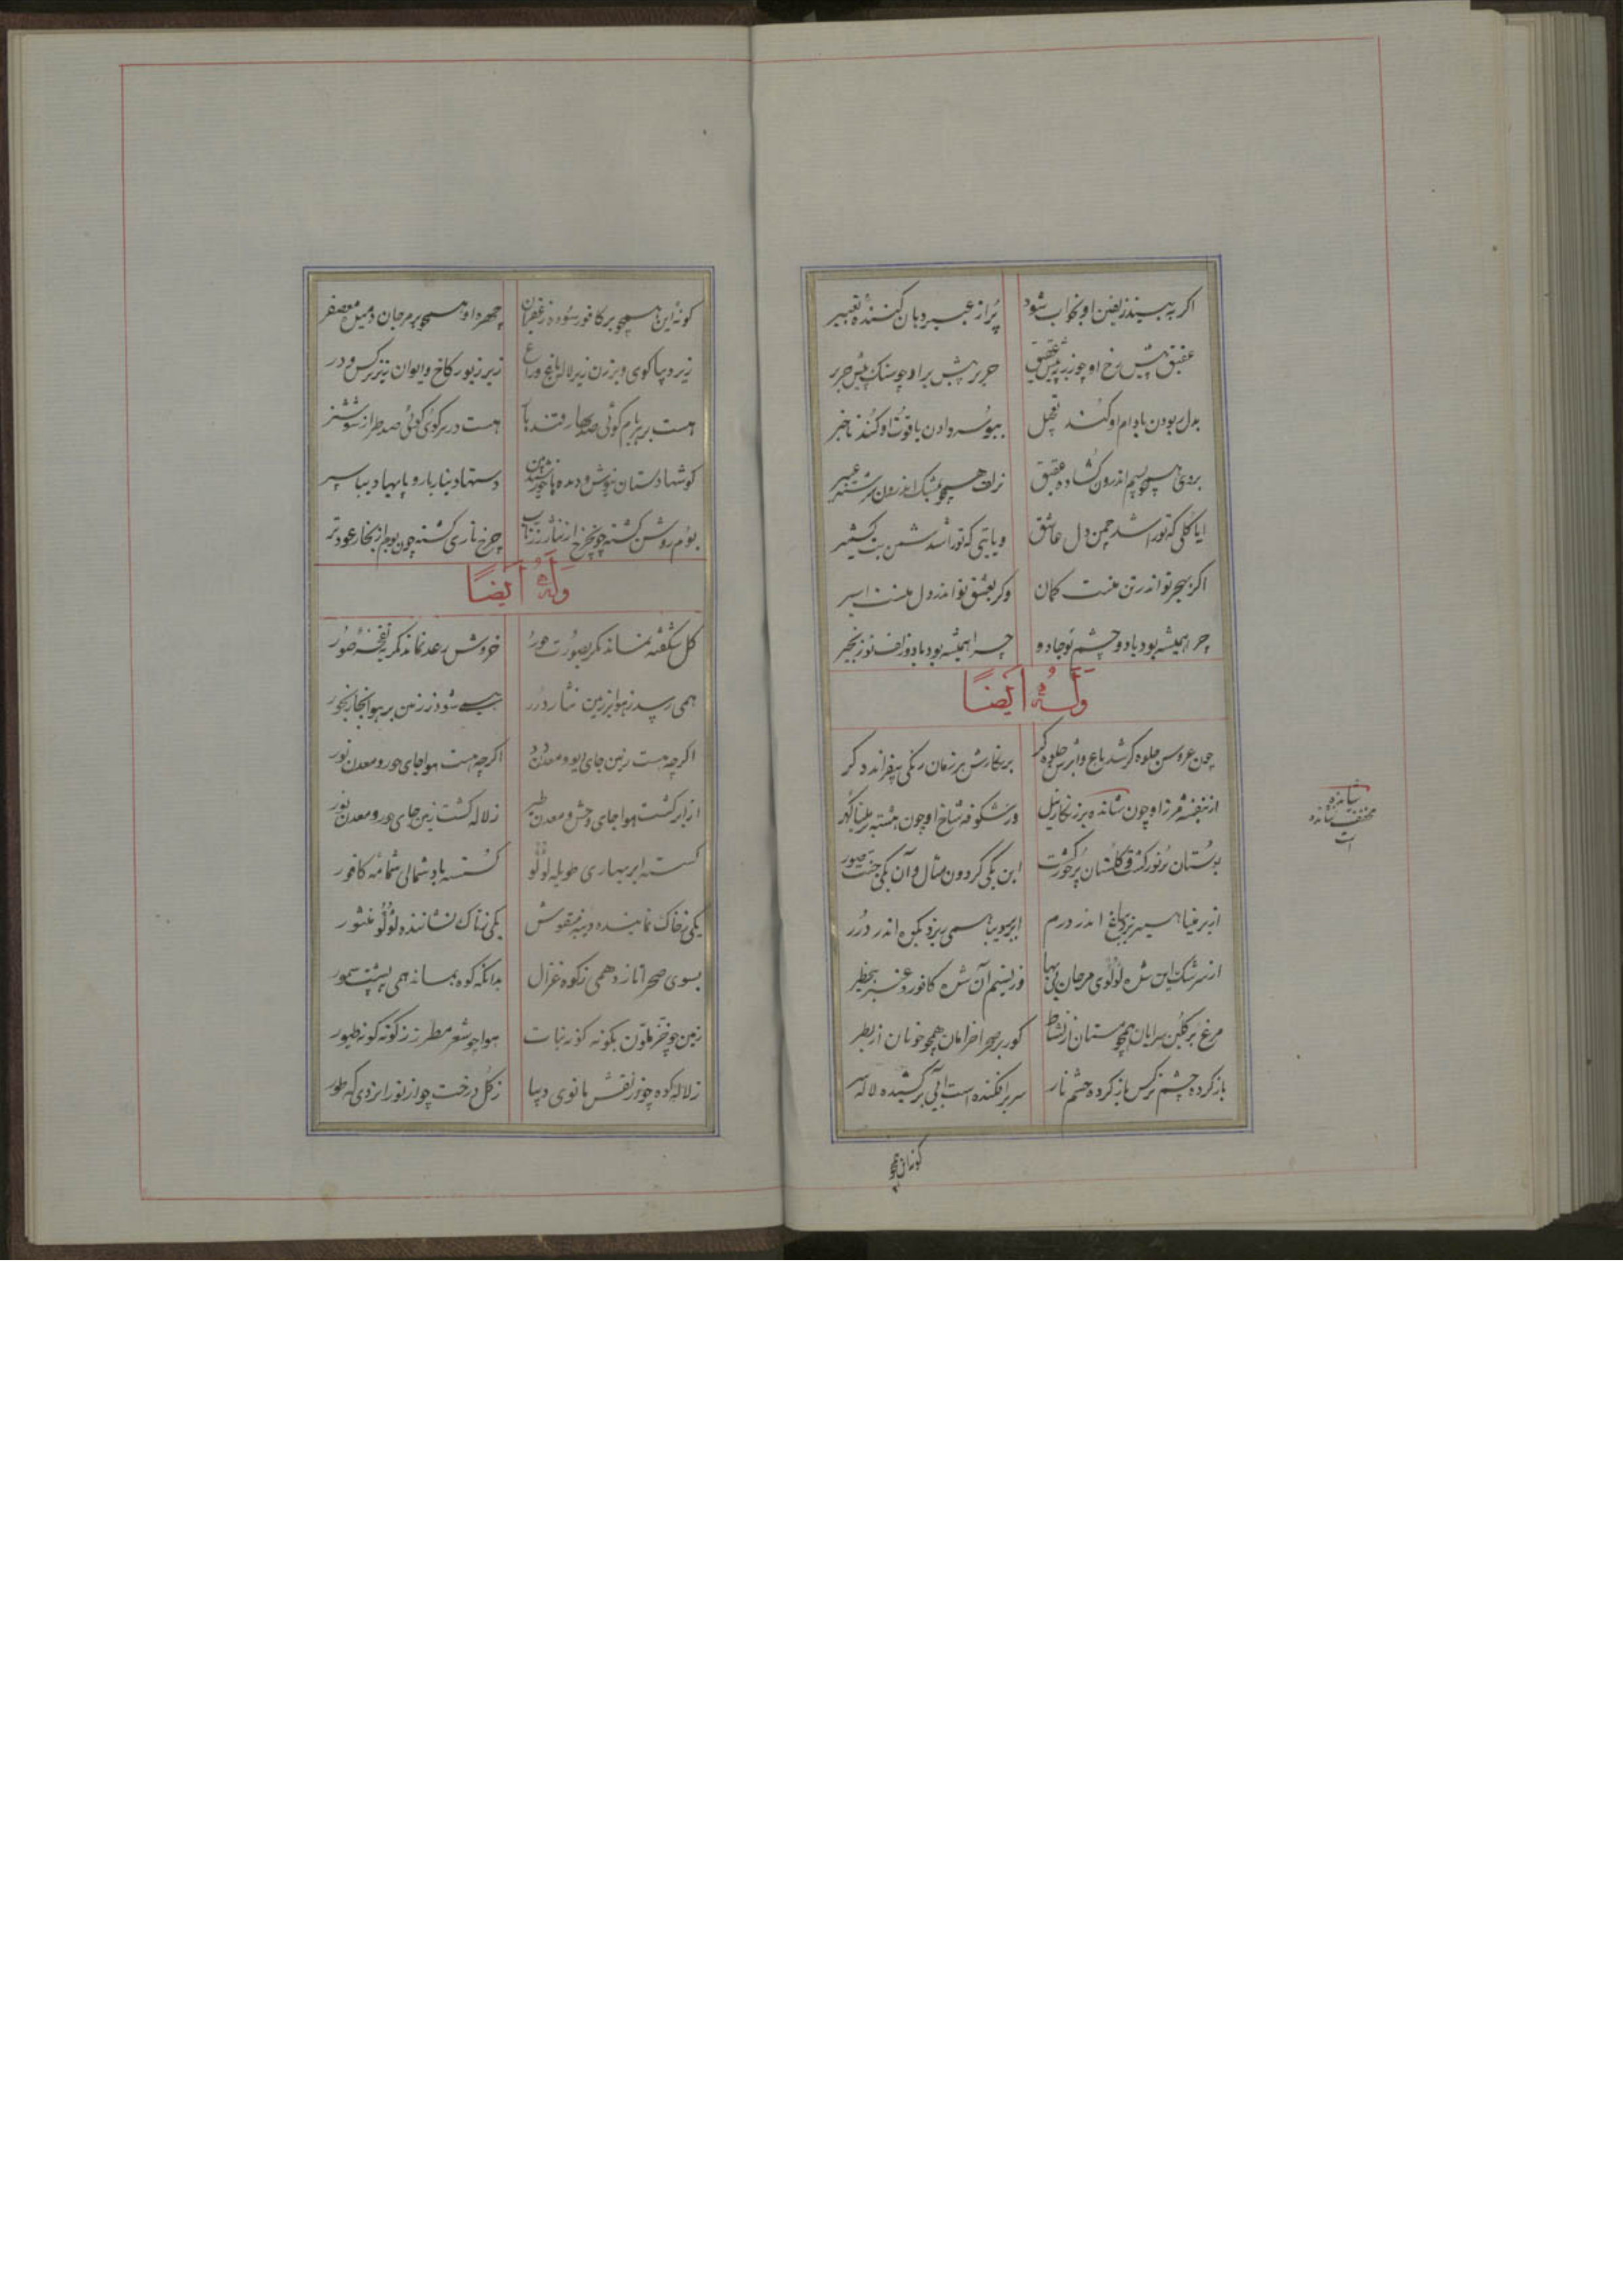 اگر به بیند زلفین او بخواب شود پر از عبیر دهان کننده تعبیر
عقیق پیش رخ او چو زر پیش عقیق حریر پیش بر او چو سنک پیش حریر
بدل بودن بادام او کند تعجیل ببوسه دادن یاقوت او کند تاخیر
بروی همچو بسیم اندرون کشاده عقیق بزلف همچو بمشک اندرون سرشته عبیر
ایا کلی که تورا شد چمن دل عاشق و یا بتی که تورا شد شمن بت کشمیر
اکر بهجر تو اندر تن منست کمان وکر بعشق تو اندر دل منست اسیر
چرا همیشه بود با دو چشم تو جادو چرا همیشه بود با دو زلف تو زنجیر
وله ایضا
چون عروس جلوه کر شد باغ و ابرش جلوه کر بر نکارش هر زمان رنکی بیفزاید دکر
از بنفشه مرز او چون شانده بر زنکار نیل وز شکوفه شاخ او چون بسته بر مینا کهر
بوستان پر نور کشت و کلستان پر حور کشت این یکی کردون مثال و آن یکی جنت صور
از بر مینا همی ریزد بباغ اندر درم ابر بر دیبا همی ریزد بکوه اندر درر
از سرشک این شده لولوی مرجان بی بها وز نسیم آن شده کافور و عنبر بی خطر
مرغ بر کلبن سرایان همچو مستان از نشاط کور بر صحرا خرامان همچو خوبان از بطر
باز کرده چشم نرکس باز کرده چشم نار سر بر افکنده است آبی بر کشیده لاله سر
شانده
مخفف نشانده
است
کونه این همچو
کونه این همچو بر کافور سوده زعفران چهره او همچو بر مرجان دمیده معصفر
زیر دیبا کوی و برزن زیر لاله باغ و راغ زیر زیور کاخ و ایوان زیر نرکس ودر
هست بر هر بام کوئی صد بهار قندهار هست در هر کوی کوئی صد طراز شوشتر
کوشها دستان نیوش و دیده‌ها خورشید بین دستها دینار بار و پایها دیبا سپر
بوم روشن کشته چون چرخ از نثار زر ناب چرخ تاری کشته چون بوم از بخار عود تر
وله ایضا
کل شکفته نماند مکر بصورت حور خروش رعد نماند مکر بنفخه صور
همی رسد ز هوا بر زمین نثار درر همی شود ز زمین بر هوا بخار بخور
اکرچه هست زمین جای دیو و معدن دد اکرچه هست هوا جای حور و معدن نور
از ابر کشت هوا جای وحش و معدن طیر ز لاله کشت زمین جای حور و معدن نور
کسسته ابر بهاری طویله لولو کسسته باد شمالی شمامه کافور
یکی ز خاک نماینده دیبه منقوش یکی ز تاک نشاننده لولو منثور
بسوی صحرا تازد همی ز کوه غزال بدانکه کوه بماند همی بپشت سمور
زمین چو خز ملون بکونه کونه نبات هوا چو شعر مطرز ز کونه کونه طیور
ز لاله کوه چو از نقش مانوی دیبا ز کل درخت چو از نور ایزدی که طور